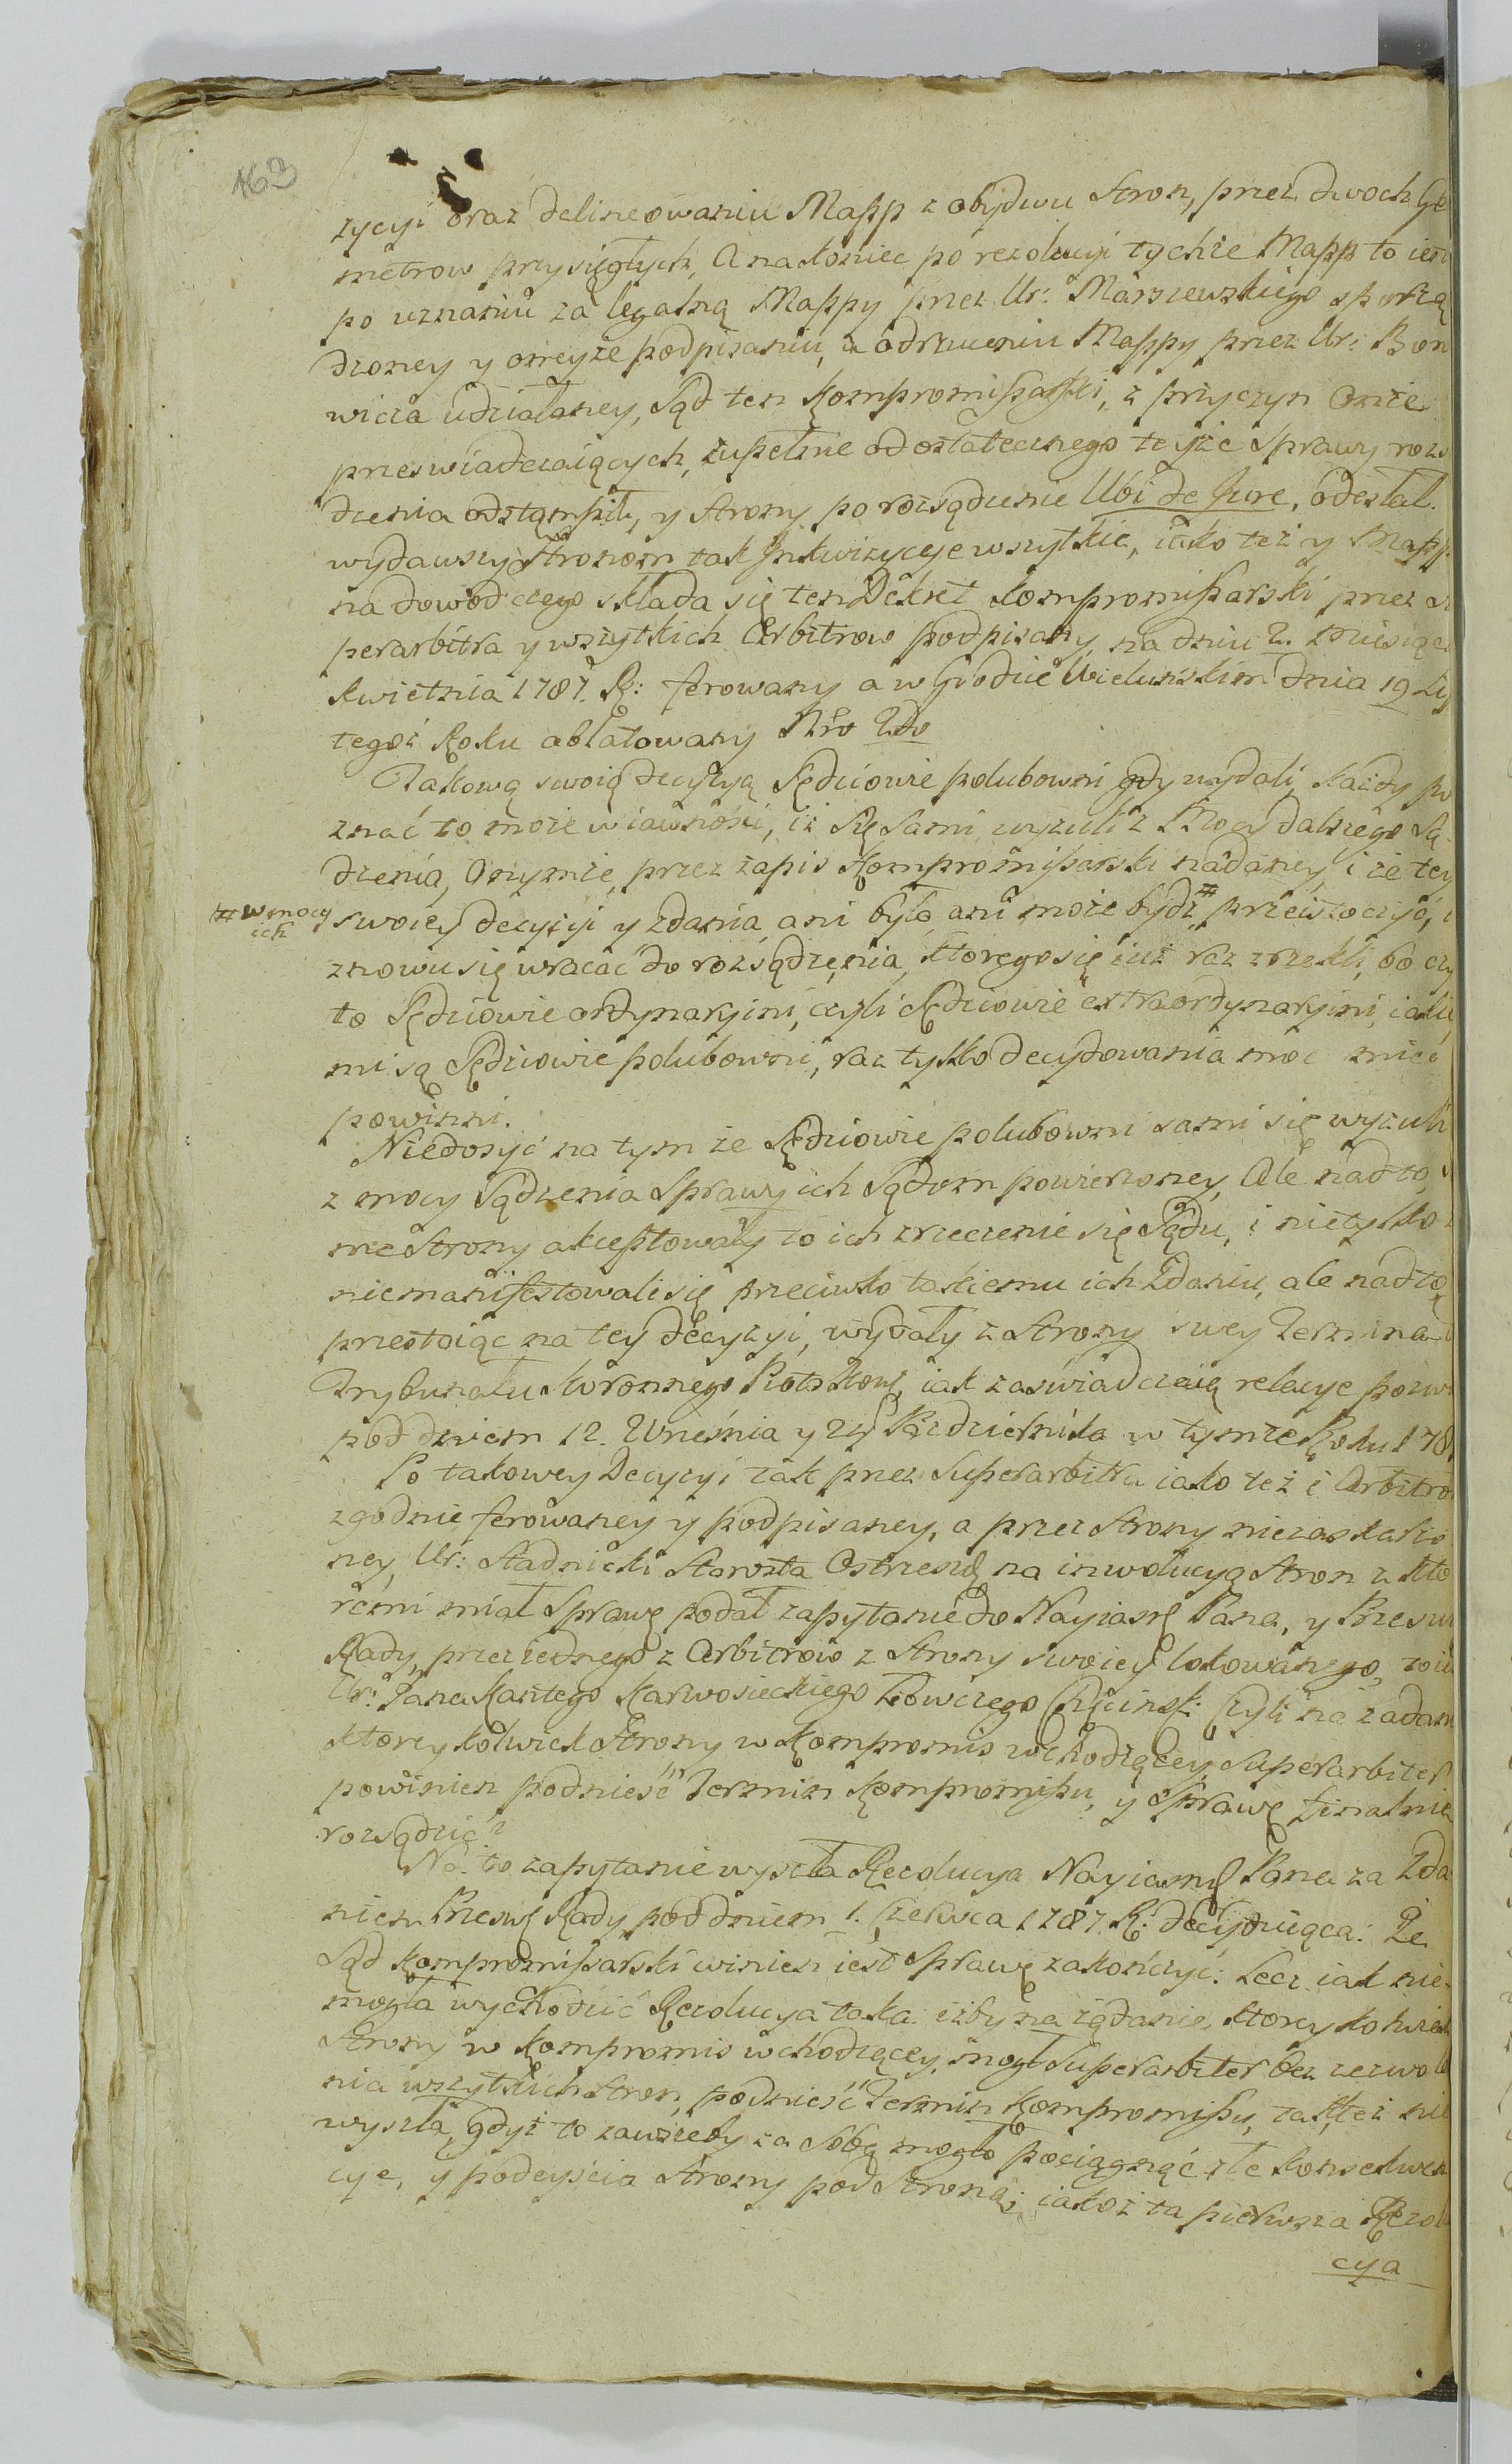 163
zycyi oraz delineowaniu Mapp z obydwu Stron, przez dwoch Ge
metrow przysięgłych, A nakoniec po rezolucyi tychże Mapp to iest
po uznaniu za legalną Mappy przez Ur: Marszewskiego sporzą
dzoney y oneyże podpisaniu, a odrzuceniu Mappy przez Ur: Bon
wicza udziałaney, Sąd ten Kompromissarski, z przyczyn Onże
przeswiadczaiących, zupełnie od ostatecznego teyże Sprawy rozs
dzenia odstąmpił, y Strony po rozsądzenie Ubi de Jure, odesłał.
wydawszy Stronom tak Jnkwizycye wszytkie, iako też y Mapp
na dowod czego składa się ten Dekret Kompromissarski przez Su
perarbitra y wszytkich Arbitrow podpisany, na dniu 2. Miesiąca
Kwietnia 1787. R: ferowany a w Grodzie Wieluńskim dnia 19
tegoż Roku oblatowany Nro 2do
Takową swoią decyzyą Sędziowie polubowni gdy wydali, każdy po
znać to może w iawności, iż Się Sami wyzuli z Mocy dalszego Są
dzenia, Onymże, przez zapis Kompromissarski nadaney, i że tey
# w mocy
ich
swoiey decyzyi y zdania, ani było ani może bydź # przeistoczyć, i
znowu się wracać do rozsądzenia, ktorego się iuż raz zrzekli, bo czy
to Sędziowie ordynaryini, czyli Sędziowie extraordynaryini, iakie
mi są Sędziowie polubowni, raz tylko decydowania moc mieć
powinni.
Niedosyć na tym że Sędziowie polubowni sami się wyzuli
z mocy Sądzenia Sprawy ich Sądom powierzoney, Ale nadto,
me Strony akceptowały to ich zrzeczenie się Sądu, i nietylko
niemanifestowali się przeciwko takiemu ich Zdaniu, ale nadto
przestaiąc na tey decyzyi, wydały z Strony swey Termina
Trybunału Koronnego Piotrkow: iak zaświadczaią relacye pozw
pod dniem 12. Września y 24 Pazdziernika w tymże Roku 178
Po takowey Decyzyi tak przez Superarbitra iako też i Arbitro
zgodnie ferowaney y podpisaney, a przez Strony niezaskarżo
ney, Ur: Stadnicki Starosta Ostrzesz: na inwolucyą Stron z kto
remi miał Sprawę podał zapytanie do Nayiasn: Pana, y Przesw
Rady, przez iednego z Arbitrow z Strony swoiey lokowanego, to ie
Ur: Jana Kantego Karwosieckiego Łowczego Chęcinsk: Czyli na żądan
ktoreykolwiek Strony w Kompromis wchodzącey, Superarbiter
powinien podnieść Termin Kompromissu, y Sprawę finalnie
rozsądzić?
Na to zapytanie wyszła Rezolucya Nayiasn: Pana za Zda
niem Przesw: Rady pod dniem 1. Czerwca 1787. R: decyduiąca: Że
Sąd Kompromissarski winien iest Sprawę zakończyć: Lecz iak nie-
mogła wychodzić Rezolucya taka iżby na żądanie, ktoreykolwiek
Strony w Kompromis wchodzącey, mogł Superarbiter bez zezwole
nia wszytkich Stron, podnieść Termin Kompromissu, tak też nie
wyszła, gdyż to zawżeby za Sobą mogło pociągnąć złe konsekwen
cye, y podeyścia Strony pod Stroną; iakoż ta pierwsza Rezolu
cya